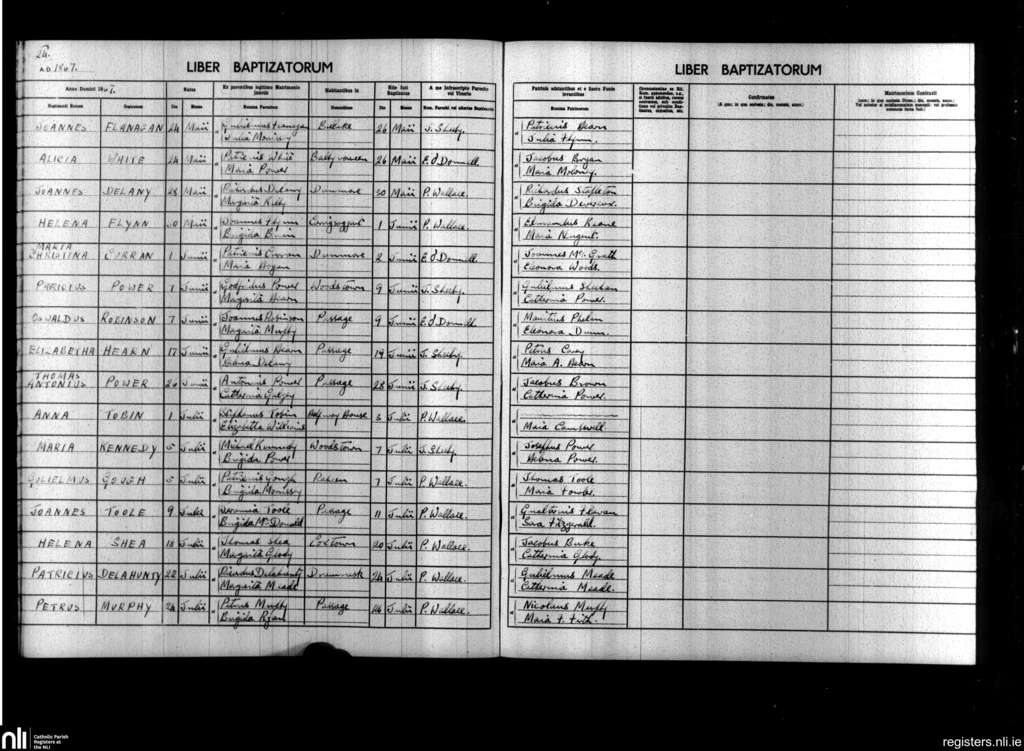 24.
A.D. 1867.
LIBER BAPTIZATORUM
LIBER BAPTIZATORUM
Anno Domini 1867.
Natus
Ex parentibus legitimo Matrimonio junctis
Habitantibus in
Rite fuit Baptizatus
A me infrascripto Parocho vel Vicario
Patrinis adstantibus et e Sacro Fonte levantibus
Confirmatus
Matrimonium Contraxit
Baptizati Nomen
Cognomen
Die
Mense
Nomina Parentum
Domicilium
Die
Mense
Nomina Patrinorum
JOANNES FLANAGAN 24 Maii Gulielmus Flanagan 26 Maii J. Sheehy. Patricius Hearn
Julia Morrissy Julia Flynn.
ALICIA WHITE 24 Maii Patricius White 26 Maii E. O'Donnell Jacobus Bryan
Maria Power Maria Molony.
JOANNES DELANY 28 Maii Ricardus Delany Dunmore 30 Maii P. Wallace. Richardus Stapleton
Margarita Kelly Brigida Devereux.
HELENA FLYNN 30 Maii Joannes Flynn 1 Junii P. Wallace. Edmundus Keane
Brigida Maria Nugent.
MARIA
CHRISTINA CURRAN 1 Junii Patricius Curran Dunmore 2 Junii E. O'Donnell Joannes McGrath
Maria Hogan Eleonora Woods.
PATRICIUS POWER 1 Junii Power Woodstown 9 Junii J. Sheehy. Gulielmus Sheehan
Margarita Hearn Catherina Power.
OSWALDUS ROBINSON 7 Junii Joannes Robinson Passage 9 Junii E. O'Donnell. Mauritius Phelan
Margarita Murphy Eleonora Dunn.
ELIZABETHA HEARN 17 Junii Gulielmus Hearn Passage 19 Junii J. Sheehy. Petrus Casey
Delany Maria A. Hearn
THOMAS
ANTONIUS POWER 26 Junii Antonius Power Passage 28 Junii J. Sheehy. Jacobus Brown
Catherina Catherina Power.
ANNA TOBIN 1 Julii Stephanus Tobin Halfway House 3 Julii P. Wallace.
Elizabetha Maria Campwell
MARIA KENNEDY 5 Julii Michael Kennedy Woodstown 7 Julii J. Sheehy. Josephus Power
Brigida Power Helena Power.
GULIELMUS GOUGH 5 Julii Patricius Gough 7 Julii P. Wallace. Thomas Toole
Brigida Morrissy Maria Fowler.
JOANNES TOOLE 9 Julii Jeremia Toole Passage 11 Julii P. Wallace. Gualterus
Brigida McDonald Sara Fitzgerald.
HELENA SHEA 18 Julii Thomas Shea Coxtown 20 Julii P. Wallace. Jacobus Burke
Margarita Glody Catherina Glody.
PATRICIUS DELAHUNTY 22 Julii Ricardus Delahunty 24 Julii P. Wallace. Gulielmus Meade
Margarita Meade Catherina Meade.
PETRUS MURPHY 24 Julii Petrus Murphy Passage Julii P. Wallace. Nicolaus Murphy
Brigida Ryan
nli Catholic Parish
Registers at
the NLI
registers.nli.ie